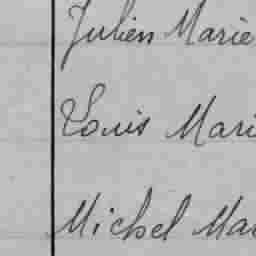 Julien Marie
Louis Mari
Michel Mar